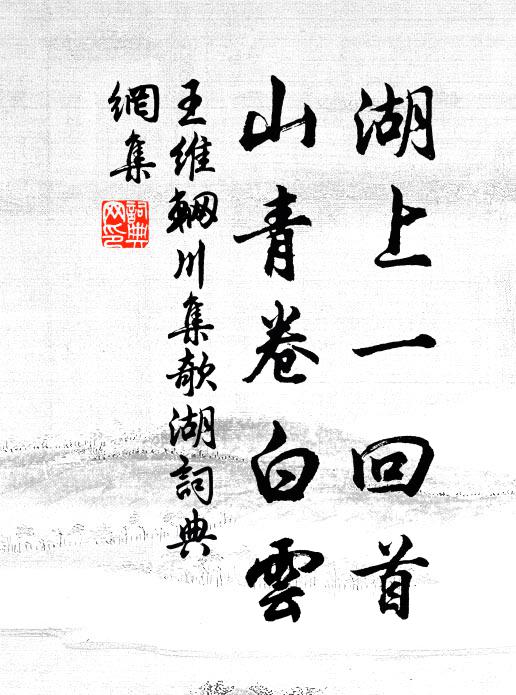 湖上一回首
山青卷白雲
王維輞川集欹湖詞典
網集
詞典網印